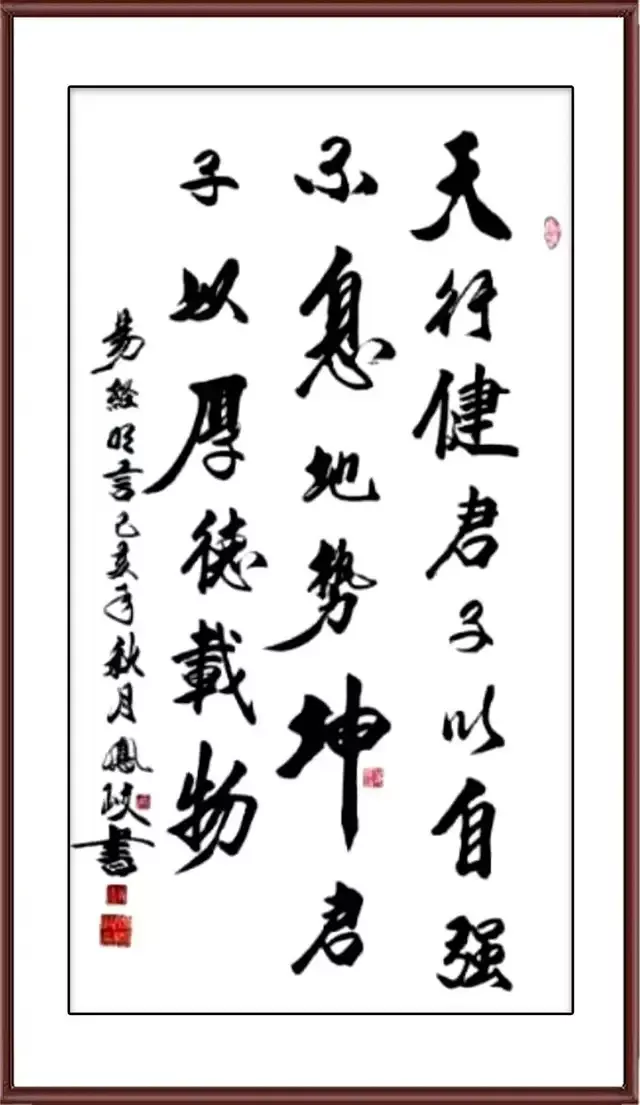 天行健君子以自强
不息地势坤君
子以厚德載物
易经名言己亥年秋月鳳岐書